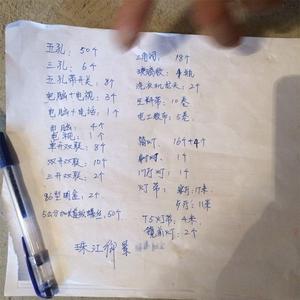 五孔: 50个
三孔: 6个
五孔带开关: 8个
电脑+电视: 3个
电脑+电话: 1个
电脑: 4个
电视: 1个
单开双联: 8个
双开双联: 10个
三开双联: 2个
86型 暗盒: 2个
50个
三角阀: 18个
玻璃胶: 4瓶
洗衣机龙头: 2个
生料带: 10卷
电工胶布: 5卷
筒灯: 16个+4个
射灯: 1个
门厅灯: 1个
灯带: 客厅: 17米
夕厅: 11米
T5灯带: 4米
镜前灯: 2个
珠江御景